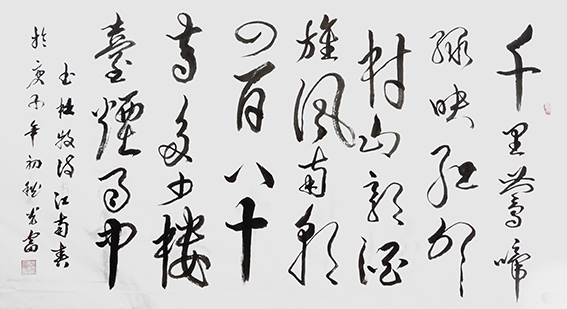 千里鶯啼
綠映紅水
村山郭酒
旗風南朝
四百八十
寺多少樓
臺煙雨中
書杜牧詩江南春
於庚子年初秋